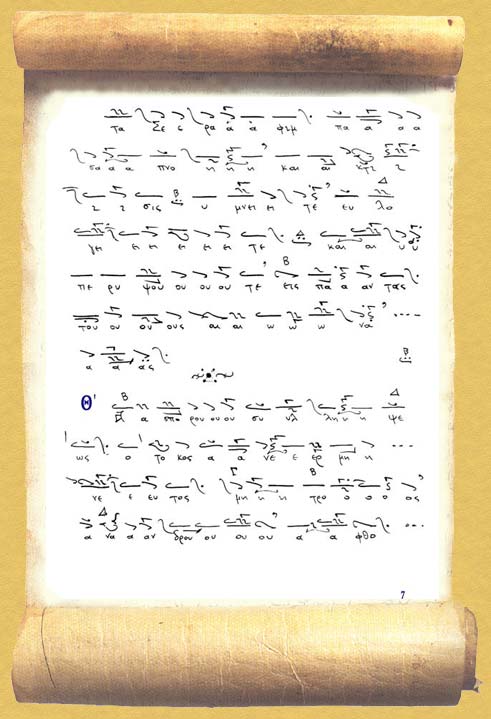 τα Σε ε ρα α α φιμ πα α α α
σα α α πνο η η η και αι κτι ι
ι ι σις υ μνει ει τε ευ λο
γει ει ει ει ει ει τε και αι υ υ
πε ρυ ψου ου ου ου τε εις πα α α αν τας
του ου ου ους αι αι ω ω ω να
α α ας
Θ' α σπο ρου ου ου συ υλ λη η η ψε
ως ο το κος α α νε ε ερ μη η
νε ε ευ τος μη η η τρο ο ο ο ος
α να α αν δρου ου ου ου α α φθο
7